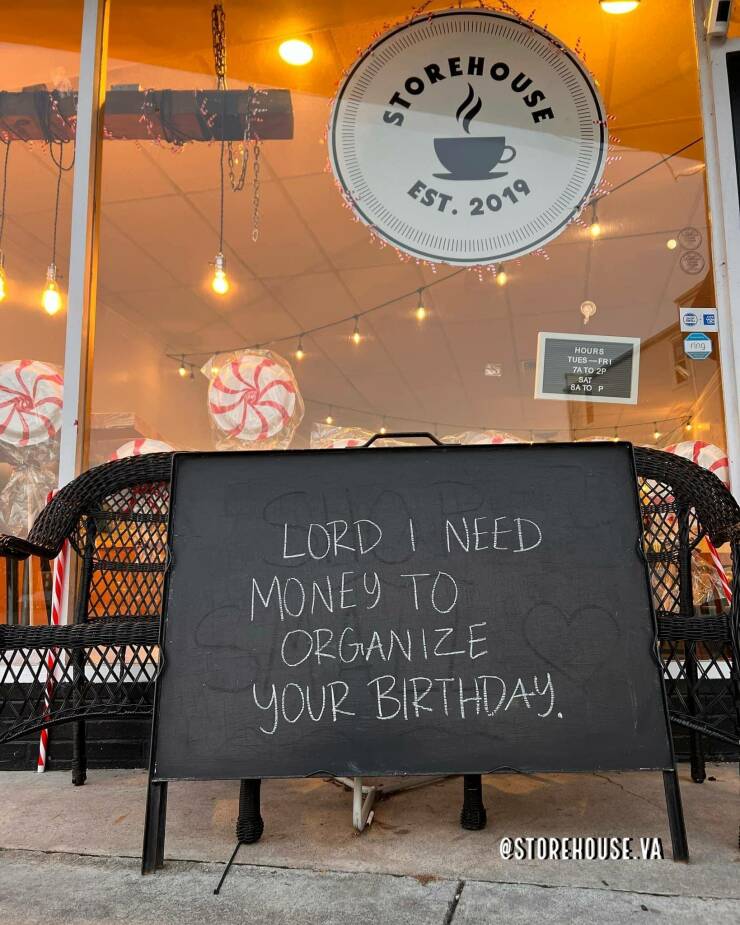 STOREHOUSE
EST. 2019
ring
HOURS
TUES—FRI
7A TO 2P
SAT
8A TO P
LORD I NEED
MONEY TO
ORGANIZE
YOUR BIRTHDAY.
@STOREHOUSE.VA